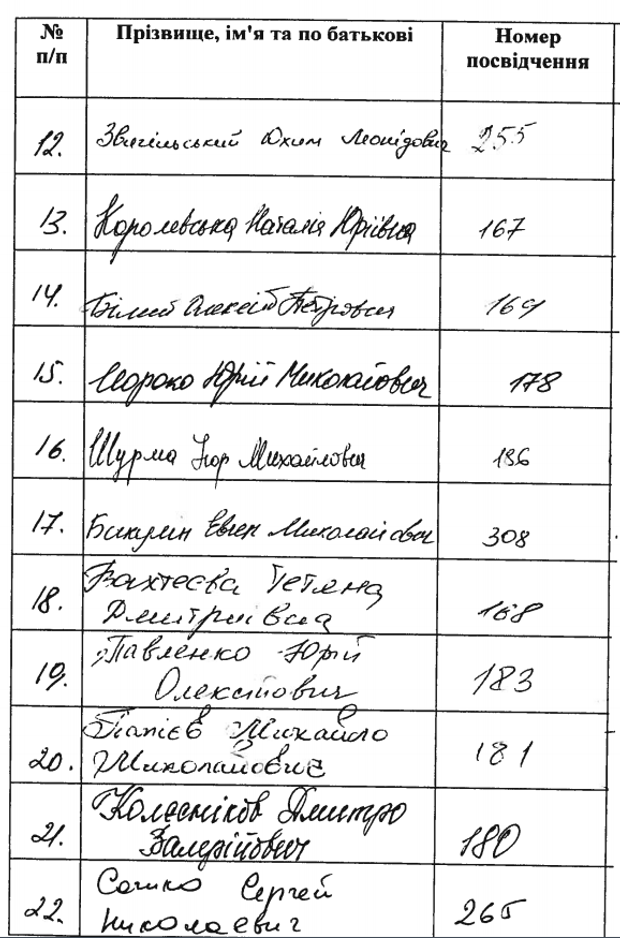 № п/п Прізвище, ім'я та по батькові Номер посвідчення
12. Звягільський Юхим Леонідович 255
13. Королевська Наталія Юріївна 167
14. Білий Олексій Петрович 169
15. Мороко Юрій Миколайович 178
16. Шурма Ігор Михайлович 186
17. Бакулін Євген Миколайович 308
18. Бахтеєва Тетяна
Дмитриївна 168
19. Павленко Юрій
Олексійович 183
20. Папієв Михайло
Миколайович 181
21. Колєсніков Дмитро
Валерійович 180
22. Сергей
Николаевич 265